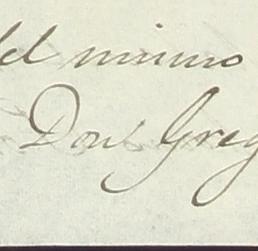 del mismo
Don Greg